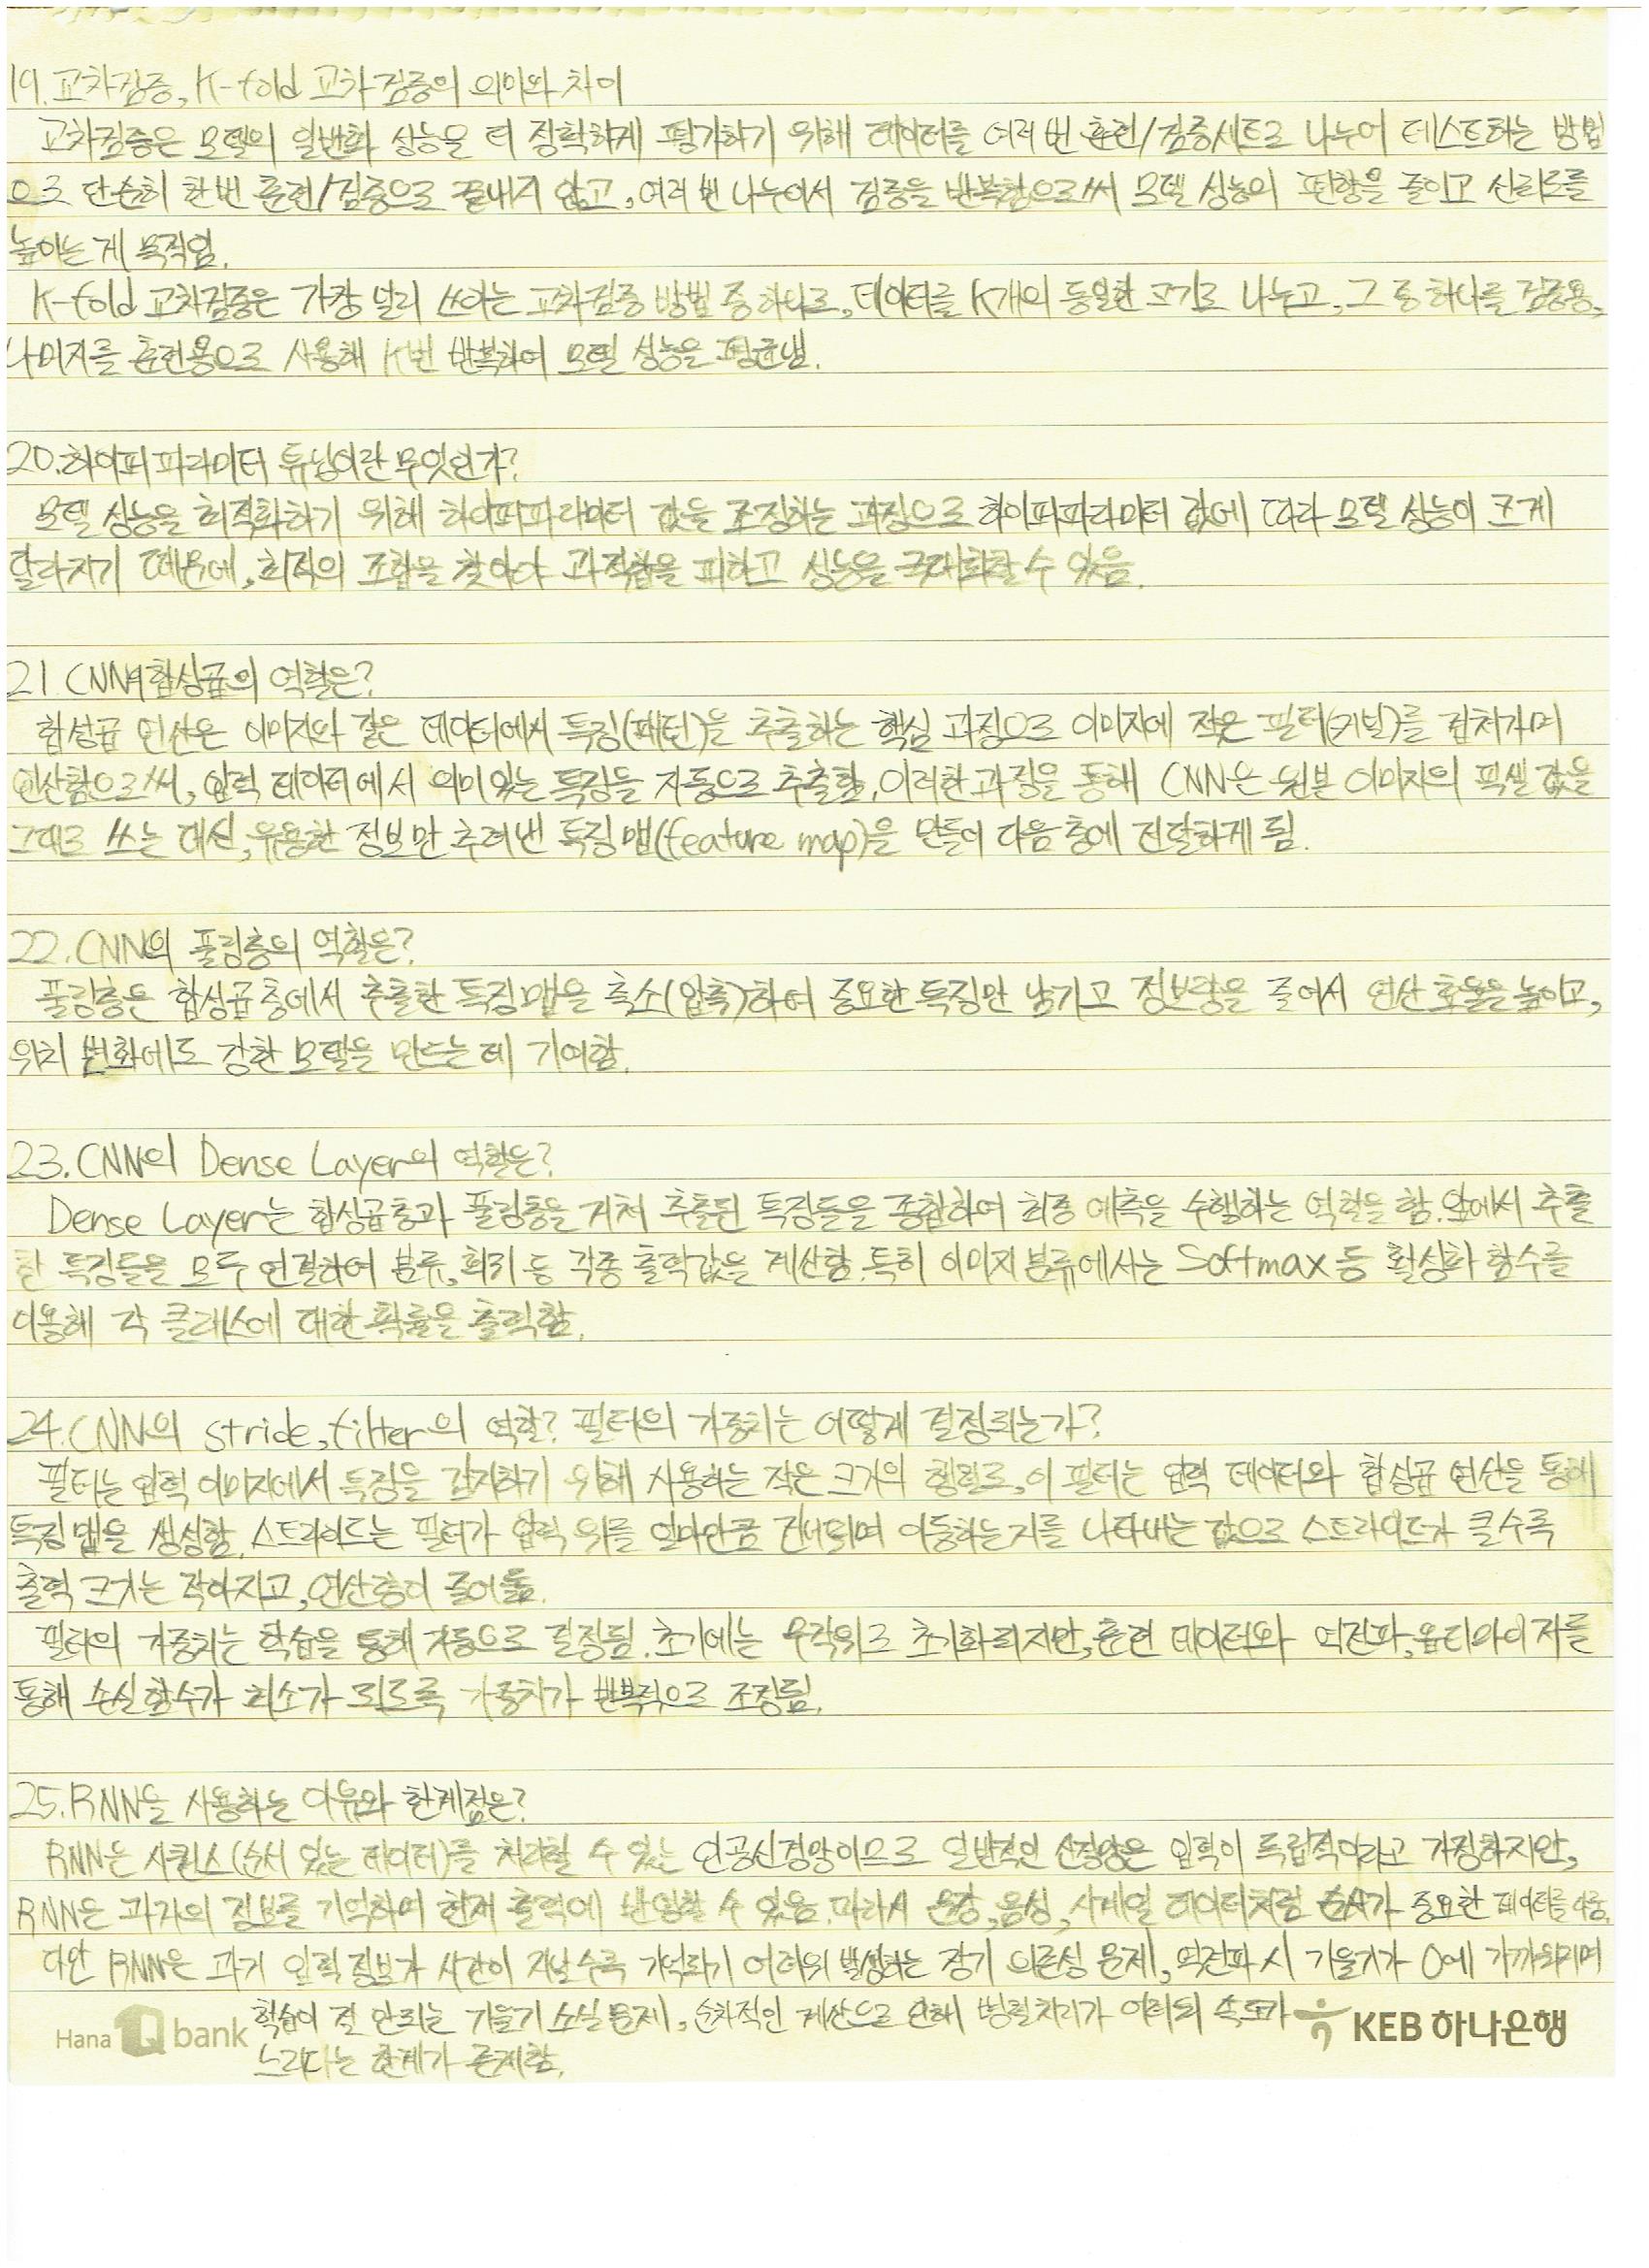 19. 교차검증, K-fold 교차검증의 의미와 차이
교차검증은 모델의 일반화 성능을 더 정확하게 평가하기 위해 데이터를 여러 번 훈련/검증세트로 나누어 테스트하는 방법
으로 단순히 한번 훈련/검증으로 끝내지 않고, 여러 번 나누어서 검증을 반복함으로써 모델 성능의 편향을 줄이고 신뢰도를
높이는 게 목적임.
K-fold 교차검증은 가장 널리 쓰이는 교차검증 방법 중 하나로, 데이터를 K개의 동일한 크기로 나누고, 그 중 하나를 검증용,
나머지를 훈련용으로 사용해 K번 반복하여 모델 성능을 평균냄.
20. 하이퍼파라미터 튜닝이란 무엇인가?
모델 성능을 최적화하기 위해 하이퍼파라미터 값을 조정하는 과정으로 하이퍼파라미터 값에 따라 모델 성능이 크게
달라지기 때문에, 최적의 조합을 찾아야 과적합을 피하고 성능을 극대화할 수 있음.
21. CNN의 합성곱의 역할은?
합성곱 연산은 이미지와 같은 데이터에서 특징(패턴)을 추출하는 핵심 과정으로 이미지에 작은 필터(커널)를 겹쳐가며
연산함으로써, 입력 데이터에서 의미있는 특징들을 자동으로 추출함. 이러한 과정을 통해 CNN은 원본 이미지의 픽셀 값을
그대로 쓰는 대신, 유용한 정보만 추려낸 특징 맵(feature map)을 만들어 다음 층에 전달하게 됨.
22. CNN의 풀링층의 역할은?
풀링층은 합성곱 층에서 추출한 특징맵을 축소(압축)하여 중요한 특징만 남기고 정보량을 줄여서 연산 효율을 높이고,
위치 변화에도 강한 모델을 만드는 데 기여함.
23. CNN의 Dense Layer의 역할은?
Dense Layer는 합성곱층과 풀링층을 거쳐 추출된 특징들을 종합하여 최종 예측을 수행하는 역할을 함. 앞에서 추출
한 특징들을 모두 연결하여 분류, 회귀 등 각종 출력값을 계산함. 특히 이미지 분류에서는 Softmax 등 활성화 함수를
이용해 각 클래스에 대한 확률을 출력함.
24. CNN의 stride, filter의 역할? 필터의 가중치는 어떻게 결정되는가?
필터는 입력 이미지에서 특징을 감지하기 위해 사용하는 작은 크기의 행렬로, 이 필터는 입력 데이터와 합성곱 연산을 통해
특징 맵을 생성함. 스트라이드는 필터가 입력 위를 얼마만큼 건너뛰며 이동하는지를 나타내는 값으로 스트라이드가 클수록
출력 크기는 작아지고, 연산량이 줄어듦.
필터의 가중치는 학습을 통해 자동으로 결정됨. 초기에는 무작위로 초기화되지만, 훈련 데이터와 역전파, 옵티마이저를
통해 손실함수가 최소가 되도록 가중치가 반복적으로 조정됨.
25. RNN을 사용하는 이유와 한계점은?
RNN은 시퀀스(순서 있는 데이터)를 처리할 수 있는 인공신경망이므로 일반적인 신경망은 입력이 독립적이라고 가정하지만,
RNN은 과거의 정보를 기억하며 현재 출력에 반영할 수 있음. 따라서 문장, 음성, 시계열 데이터처럼 순서가 중요한 데이터를 다룸.
다만 RNN은 과거 입력 정보가 시간이 지날수록 기억되기 어려워 발생하는 장기 의존성 문제, 역전파 시 기울기가 0에 가까워지며
학습이 잘 안되는 기울기 소실 문제, 순차적인 계산으로 인해 병렬처리가 어려워 속도가
느리다는 한계가 존재함.
Hana 1Q bank KEB 하나은행